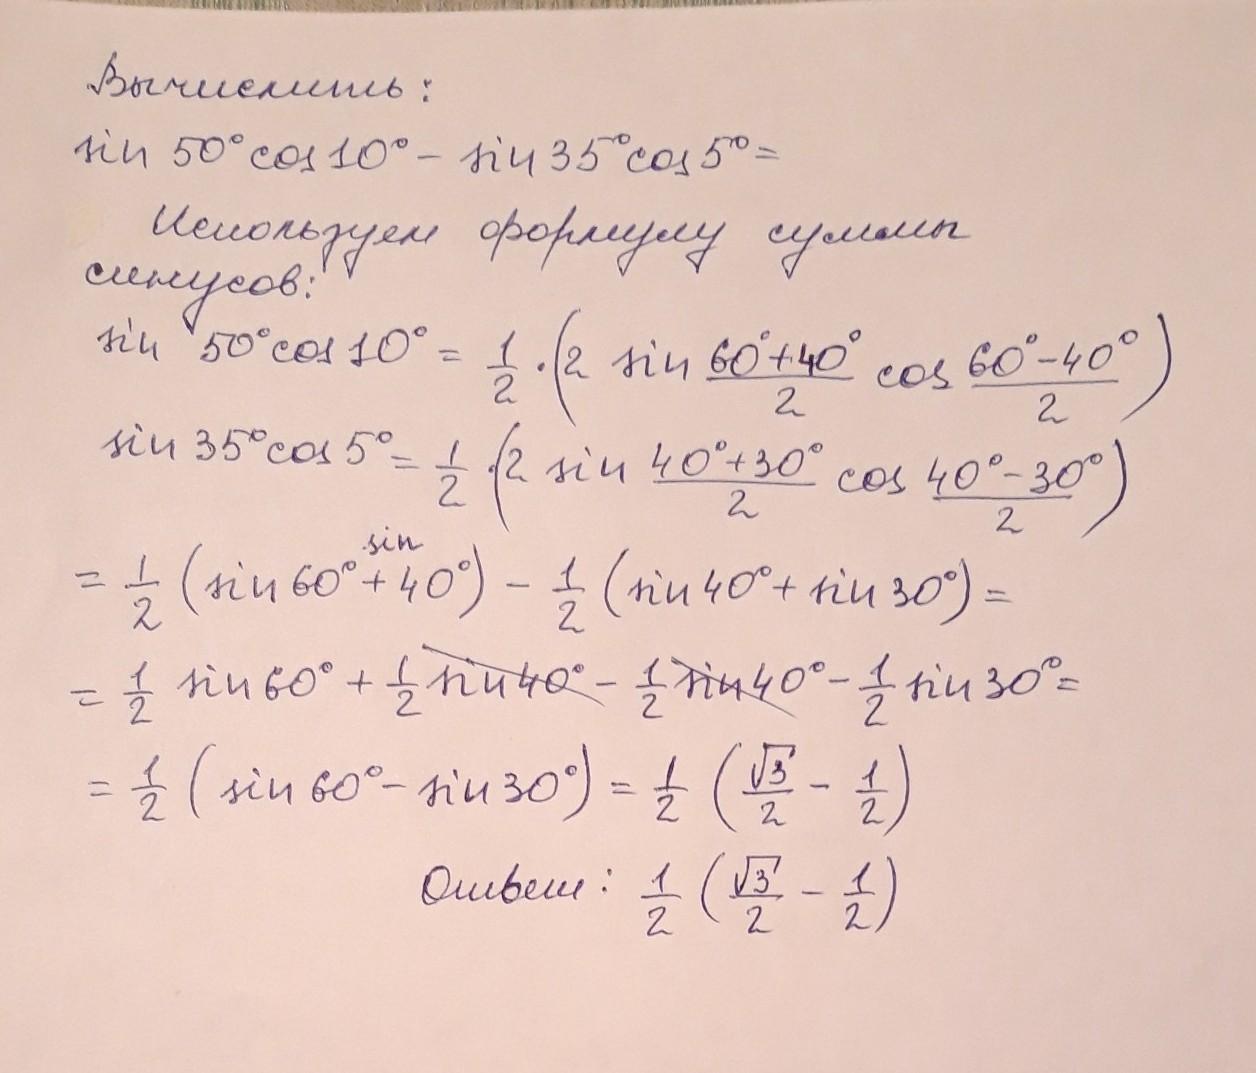 Вычислить:
sin 50° cos 10° − sin 35° cos 5° =
Используем формулу суммы
синусов:
sin 50° cos 10° = 1/2 · (2 sin (60° + 40°)/2 cos (60° − 40°)/2)
sin 35° cos 5° = 1/2 · (2 sin (40° + 30°)/2 cos (40° − 30°)/2)
= 1/2 (sin 60° + sin 40°) − 1/2 (sin 40° + sin 30°) =
= 1/2 sin 60° + 1/2 sin 40° − 1/2 sin 40° − 1/2 sin 30° =
= 1/2 (sin 60° − sin 30°) = 1/2 (√3/2 − 1/2)
Ответ: 1/2 (√3/2 − 1/2)